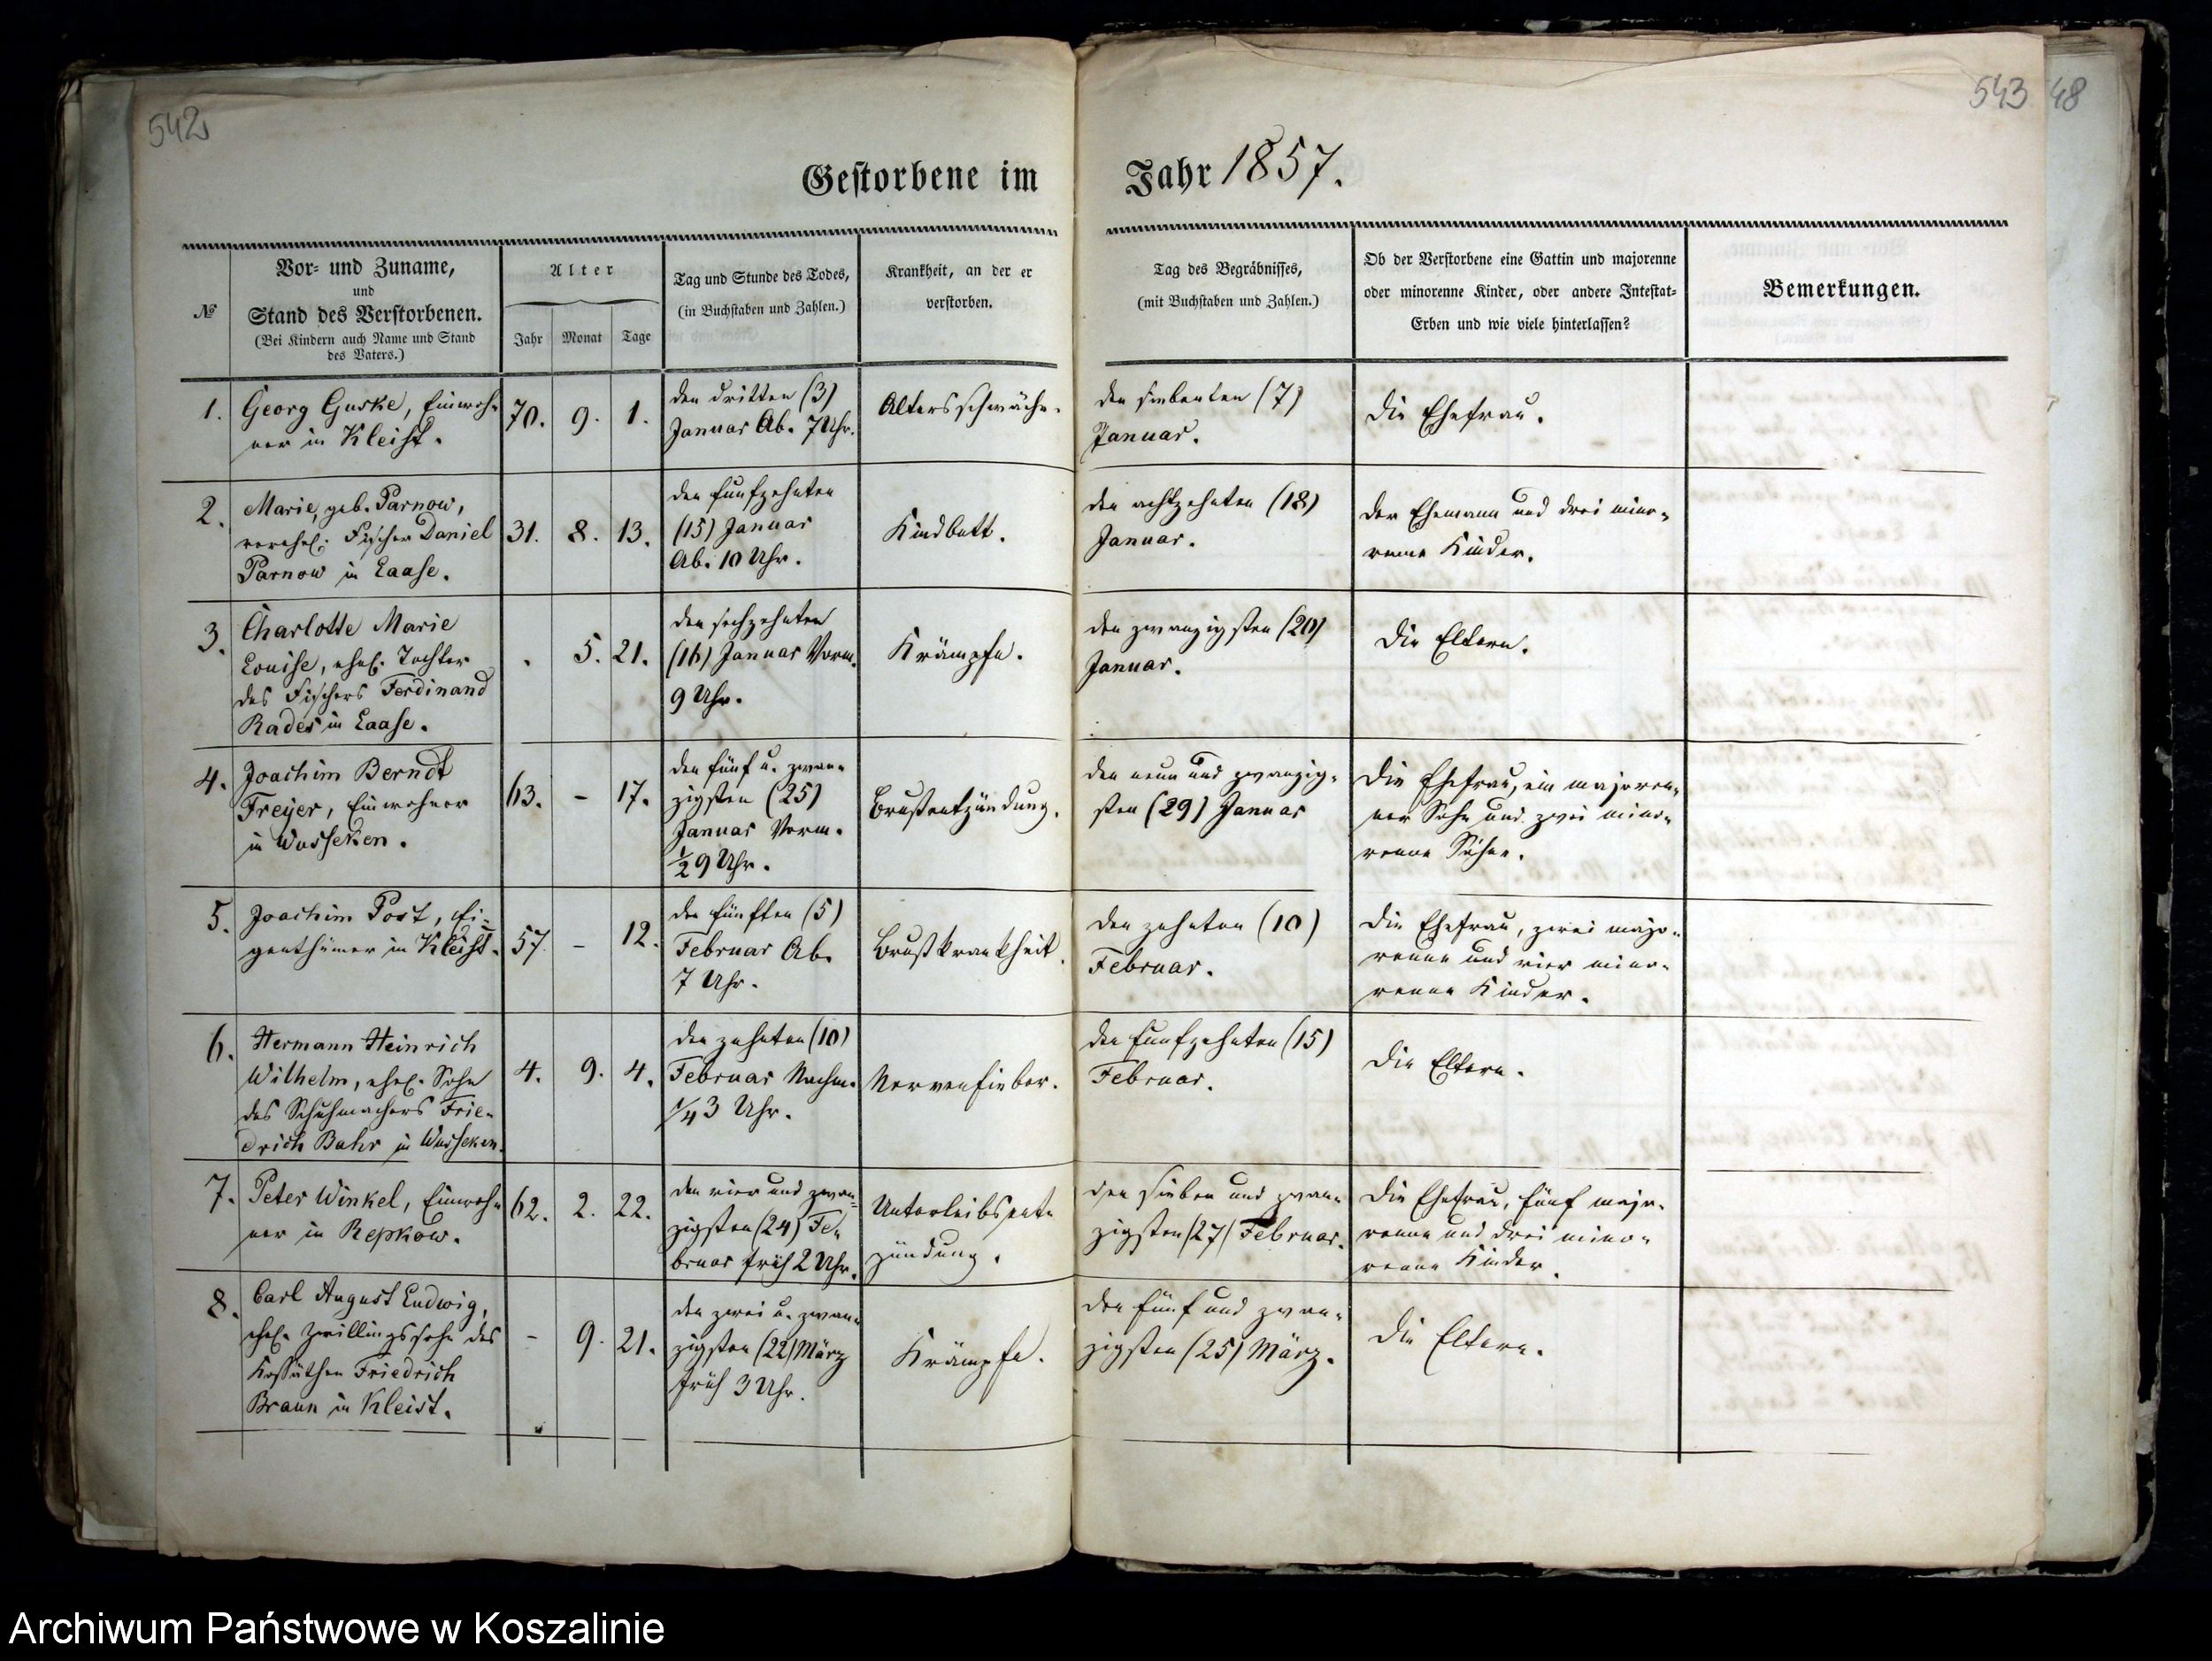 542
543 48
Gestorbene im
Jahr 1857.
№
Vor- und Zuname,
und
Stand des Verstorbenen.
(Bei Kindern auch Name und Stand
des Vaters.)
Alter
Jahr Monat Tage
Tag und Stunde des Todes,
(in Buchstaben und Zahlen.)
Krankheit, an der er
verstorben.
Tag des Begräbnisses,
(mit Buchstaben und Zahlen.)
Ob der Verstorbene eine Gattin und majorenne
oder minorenne Kinder, oder andere Intestat-
Erben und wie viele hinterlassen?
Bemerkungen.
1. Georg Guske, Einwoh-
ner in Kleist.
70. 9. 1.
den dritten (3)
Januar Ab. 7 Uhr.
Altersschwäche.
den siebenten (7)
Januar.
die Ehefrau.
2. Marie, geb. Parnow,
verehel. Fischer Daniel
Parnow in Laase.
31. 8. 13.
den funfzehnten
(15) Januar
Ab. 10 Uhr.
Kindbett.
den achtzehnten (18)
Januar.
der Ehemann und drei mino-
renne Kinder.
3. Charlotte Marie
Louise, ehel. Tochter
des Fischers Ferdinand
Rades in Laase.
. 5. 21.
den sechzehnten
(16) Januar Vorm.
9 Uhr.
Krämpfe.
den zwanzigsten (20)
Januar.
die Eltern.
4. Joachim Berndt
Freyer, Einwohner
in Wusseken.
63. – 17.
den fünf u. zwan-
zigsten (25)
Januar Vorm.
½9 Uhr.
Brustentzündung.
den neun und zwanzig-
sten (29) Januar
die Ehefrau, ein majoren-
ner Sohn und zwei mino-
renne Söhne.
5. Joachim Post, Ei-
genthümer in Kleist.
57. – 12.
den fünften (5)
Februar Ab.
7 Uhr.
Brustkrankheit.
den zehnten (10)
Februar.
die Ehefrau, zwei majo-
renne und vier mino-
renne Kinder.
6. Hermann Heinrich
Wilhelm, ehel. Sohn
des Schuhmachers Frie-
drich Bahr in Wusseken.
4. 9. 4.
den zehnten (10)
Februar Nachm.
¼3 Uhr.
Nervenfieber.
den funfzehnten (15)
Februar.
die Eltern.
7. Peter Winkel, Einwoh-
ner in Repkow.
62. 2. 22.
den vier und zwan-
zigsten (24) Fe-
bruar früh 2 Uhr.
Unterleibsent-
zündung.
den sieben und zwan-
zigsten (27) Februar.
die Ehefrau, fünf majo-
renne und drei mino-
renne Kinder.
8. Carl August Ludwig,
ehel. Zwillingssohn des
Kossäthen Friedrich
Braun in Kleist.
– 9. 21.
den zwei u. zwan-
zigsten (22) März
früh 3 Uhr.
Krämpfe.
den fünf und zwan-
zigsten (25) März.
die Eltern.
Archiwum Państwowe w Koszalinie